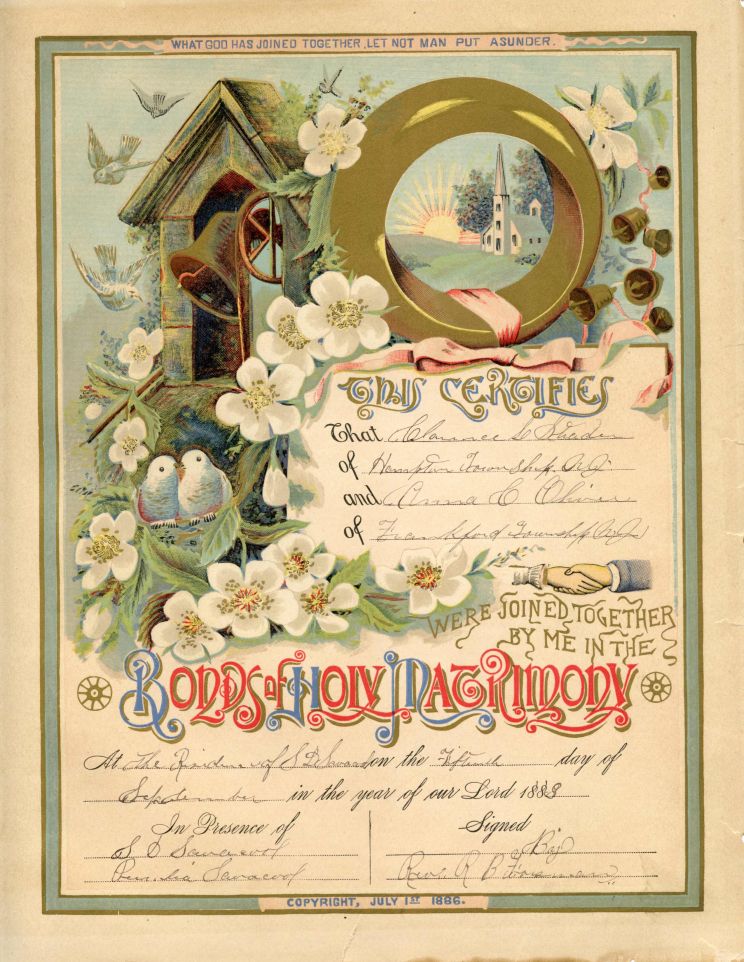 WHAT GOD HAS JOINED TOGETHER, LET NOT MAN PUT ASUNDER.
THIS CERTIFIES
That Clarence
of Hampton Township N.J.
and Anna C Oliver
of Frankford Township N.J.
WERE JOINED TOGETHER
BY ME IN THE
BONDS OF HOLY MATRIMONY
At the of S D on the Fifteenth day of
September in the year of our Lord 1888
In Presence of
Signed
By
S D Savacool
Savacool
Rev. R B
COPYRIGHT, JULY 1ST 1886.